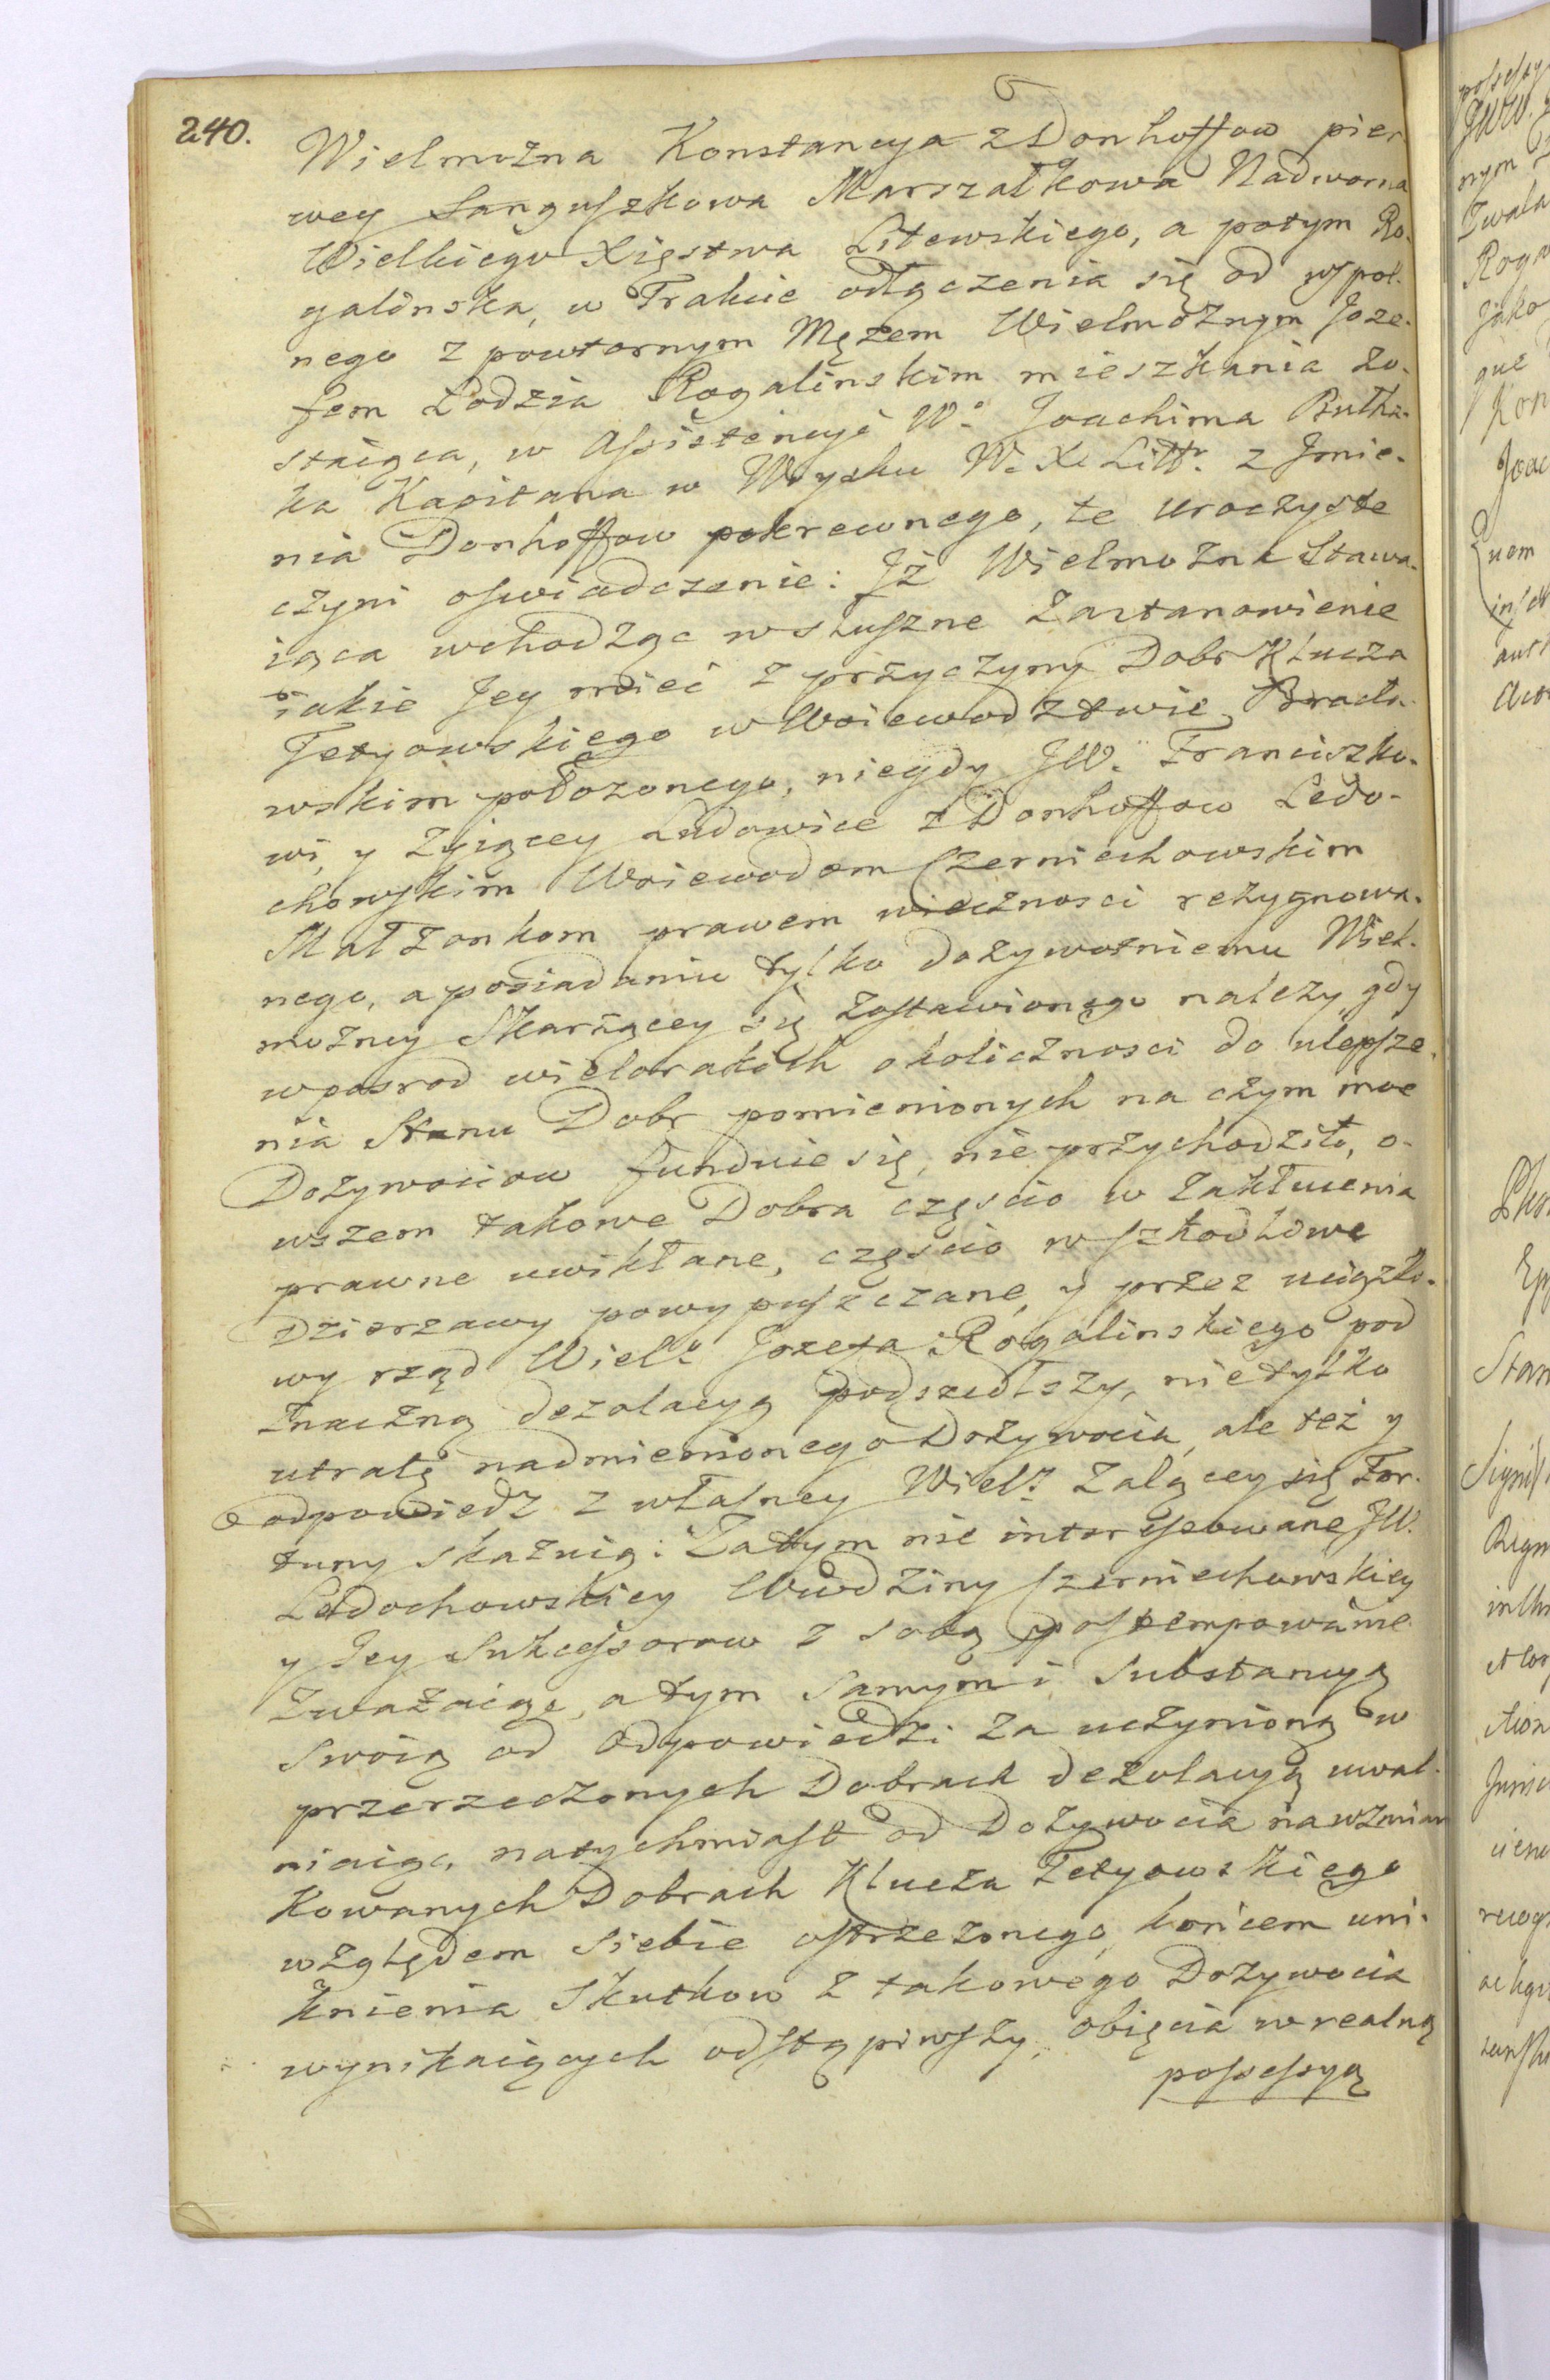 240.
Wielmożna Konstancya z Donhoffow pier-
wey Sanguszkowa Marszałkowa Nadworna
Wielkiego Xięstwa Litewskiego, a potym Ro-
galinska, w Trakcie odłączenia się od wspol-
nego z powtornym Mężem Wielmożnym Joze-
fem Łodzia Rogalinskim mieszkania zo-
staiąca, w Assistencyi W. Joachima Butka-
ka Kapitana w Woysku W. X. Litt. z Jmie-
nia Donhoffow pokrewnego, te uroczyste
czyni oswiadczenie: Jż Wielmożna Stawa-
iąca wchodząc w słuszne Zastanowienie
iakie Jey mieć z przyczyny Dobr Klucza
Tetyowskiego w Woiewodztwie Bracła-
wskim położonego, niegdy JW. Franciszko-
wi, y żyiącey Ludowice z Donhoffow Ledo-
chowskim Woiewodom Czerniechowskim
Małżonkom prawem wieczności rezygnowa-
nego, a posiadaniu tylko dożywotniemu Wiel-
możney Skarżącey się zostawionego należy, gdy
wposrod wielorakich okoliczności do ulepsze-
nia Stanu Dobr pomienionych na czym moc
Dożywociow funduie się, nie przychodziło, o-
wszem takowe Dobra częscio w Zakłucenia
prawne uwikłane, częscio w szkodliwe
Dzierżawy powypuszczane, y przez uciążli-
wy rząd Wiel. Jozefa Rogalinskiego pod
znaczną dezolacyą podszedłszy, nietylko
utratę nadmienionego Dożywocia, ale też y
odpowiedz z własney Wiel. Żalącey się For-
tuny skaźnią: Zatym nie interesowane JW.
Ledochowskiey Wwdziny Czerniechowskiey
y Jey Sukcessorow z sobą postempowanie
Zważaiąc, a tym samym i Substancyą
swoią od Odpowiedzi za uczynioną w
przerzeczonych Dobrach dezolacyą uwal-
niaiąc, natychmiast od Dożywocia na wzmian
kowanych Dobrach Klucza Tetyowskiego
względem siebie ostrzeżonego, końcem uni-
knienia Skutkow z takowego Dożywocia
wynikaiących odstąpiwszy, obięcia w realną
possessyą